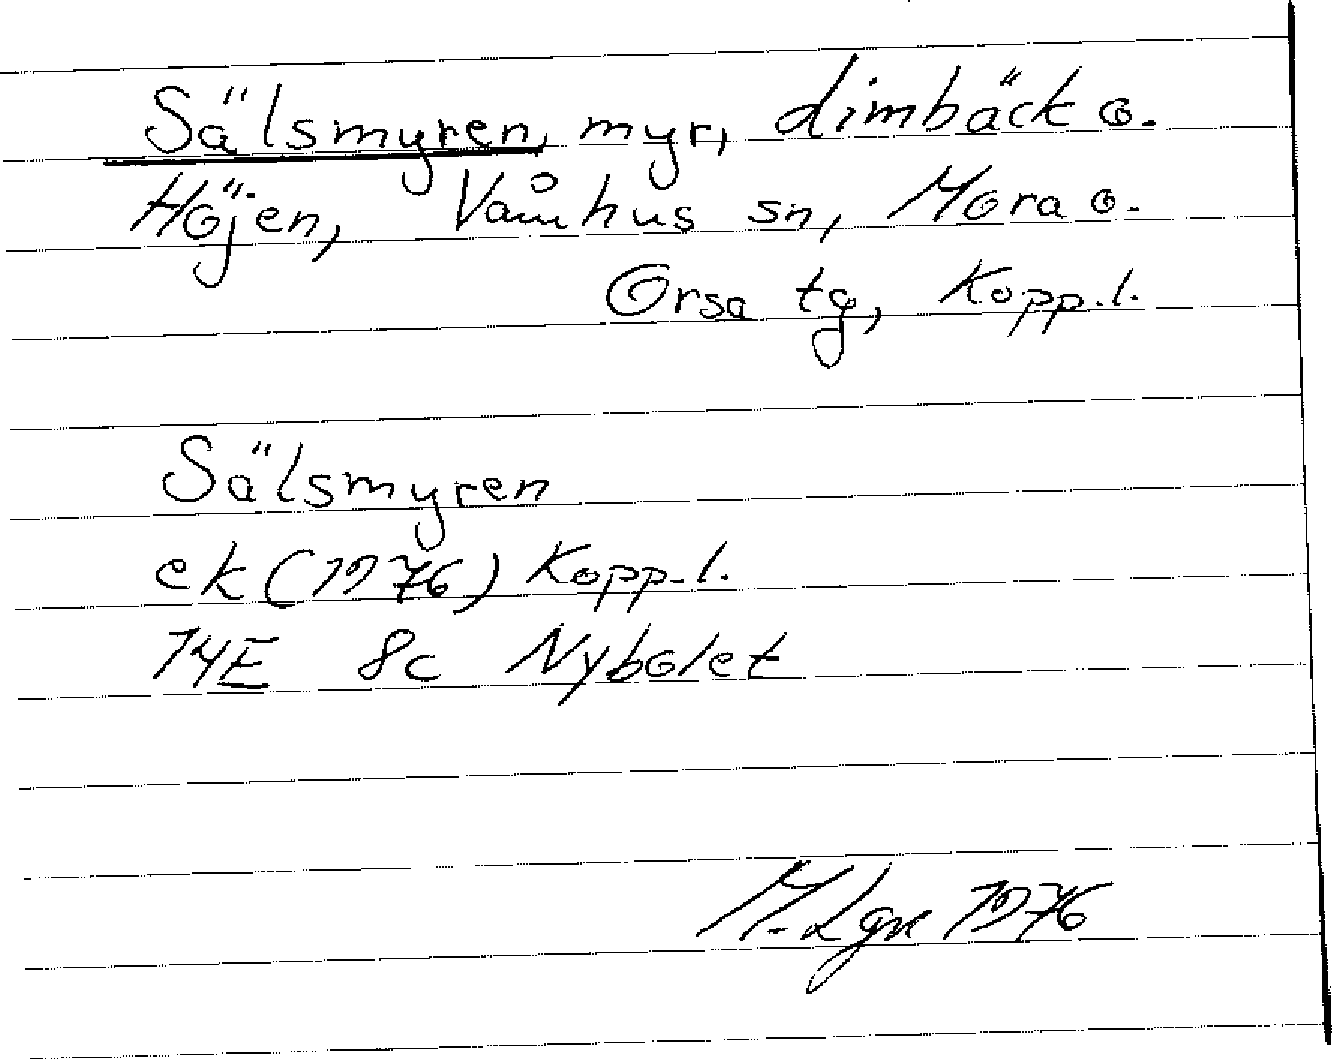 Sälsmyren, myr, dimbäck o.
Höjen, Våmhus sn, Mora o.
Orsa tg, Kopp.l.
Sälsmyren
ek (1976) Kopp.l.
14E 8c Nybolet
M. Lgn 1976